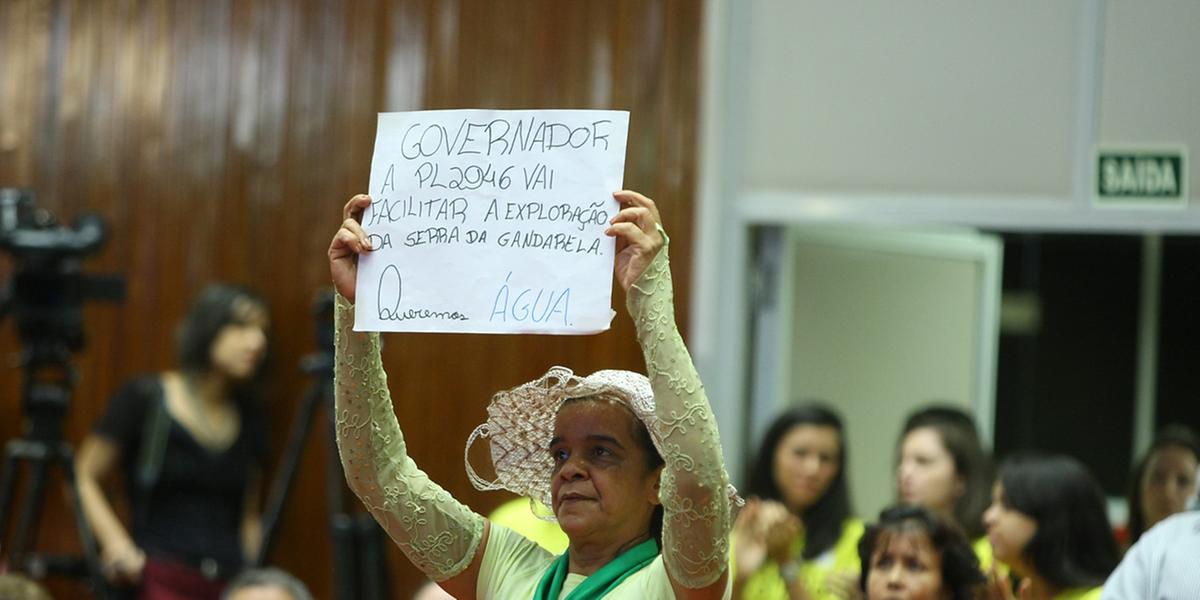 GOVERNADOR
A PL2946 VAI
FACILITAR A EXPLORAÇÃO
DA SERRA DA GANDARELA.
Queremos ÁGUA.
SAÍDA